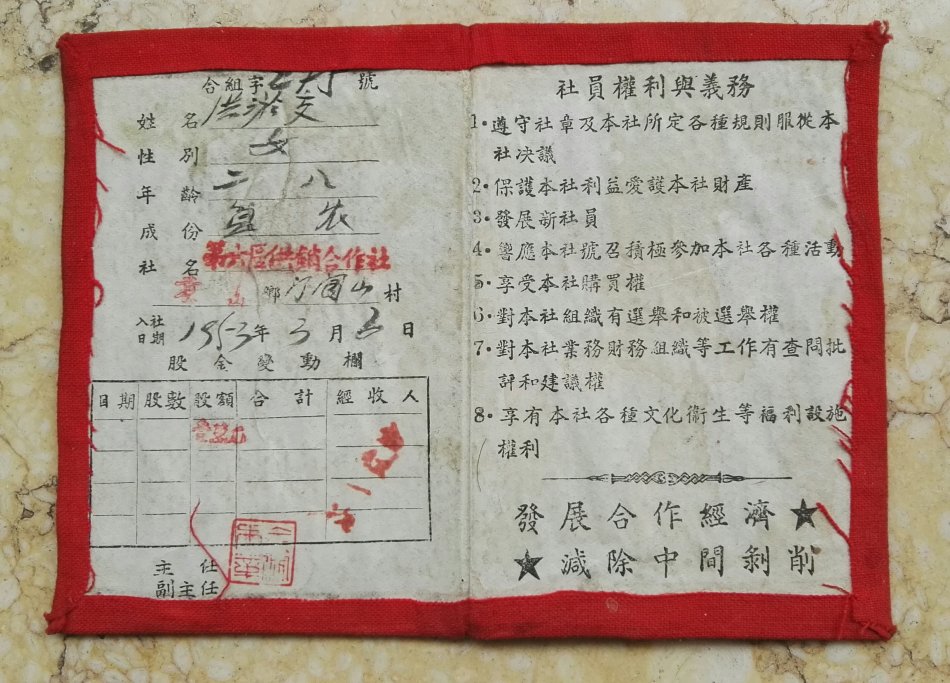 合組字 號
姓名 洪 文
性別 女
年齡 二八
成份 農
社名 第六區供銷合作社
山 鄉 山村
入社日期 1953年3月 日
股金變動欄
日期 股數 股額 合計 經收人
主任
副主任
社員權利與義務
1·遵守社章及本社所定各種規則服從本
社决議
2·保護本社利益愛護本社財產
3·發展新社員
4·響應本社號召積極參加本社各種活動
5·享受本社購買權
6·對本社組織有選舉和被選舉權
7·對本社業務財務組織等工作有查問批
評和建議權
8·享有本社各種文化衛生等福利設施
權利
發展合作經濟★
★減除中間剝削